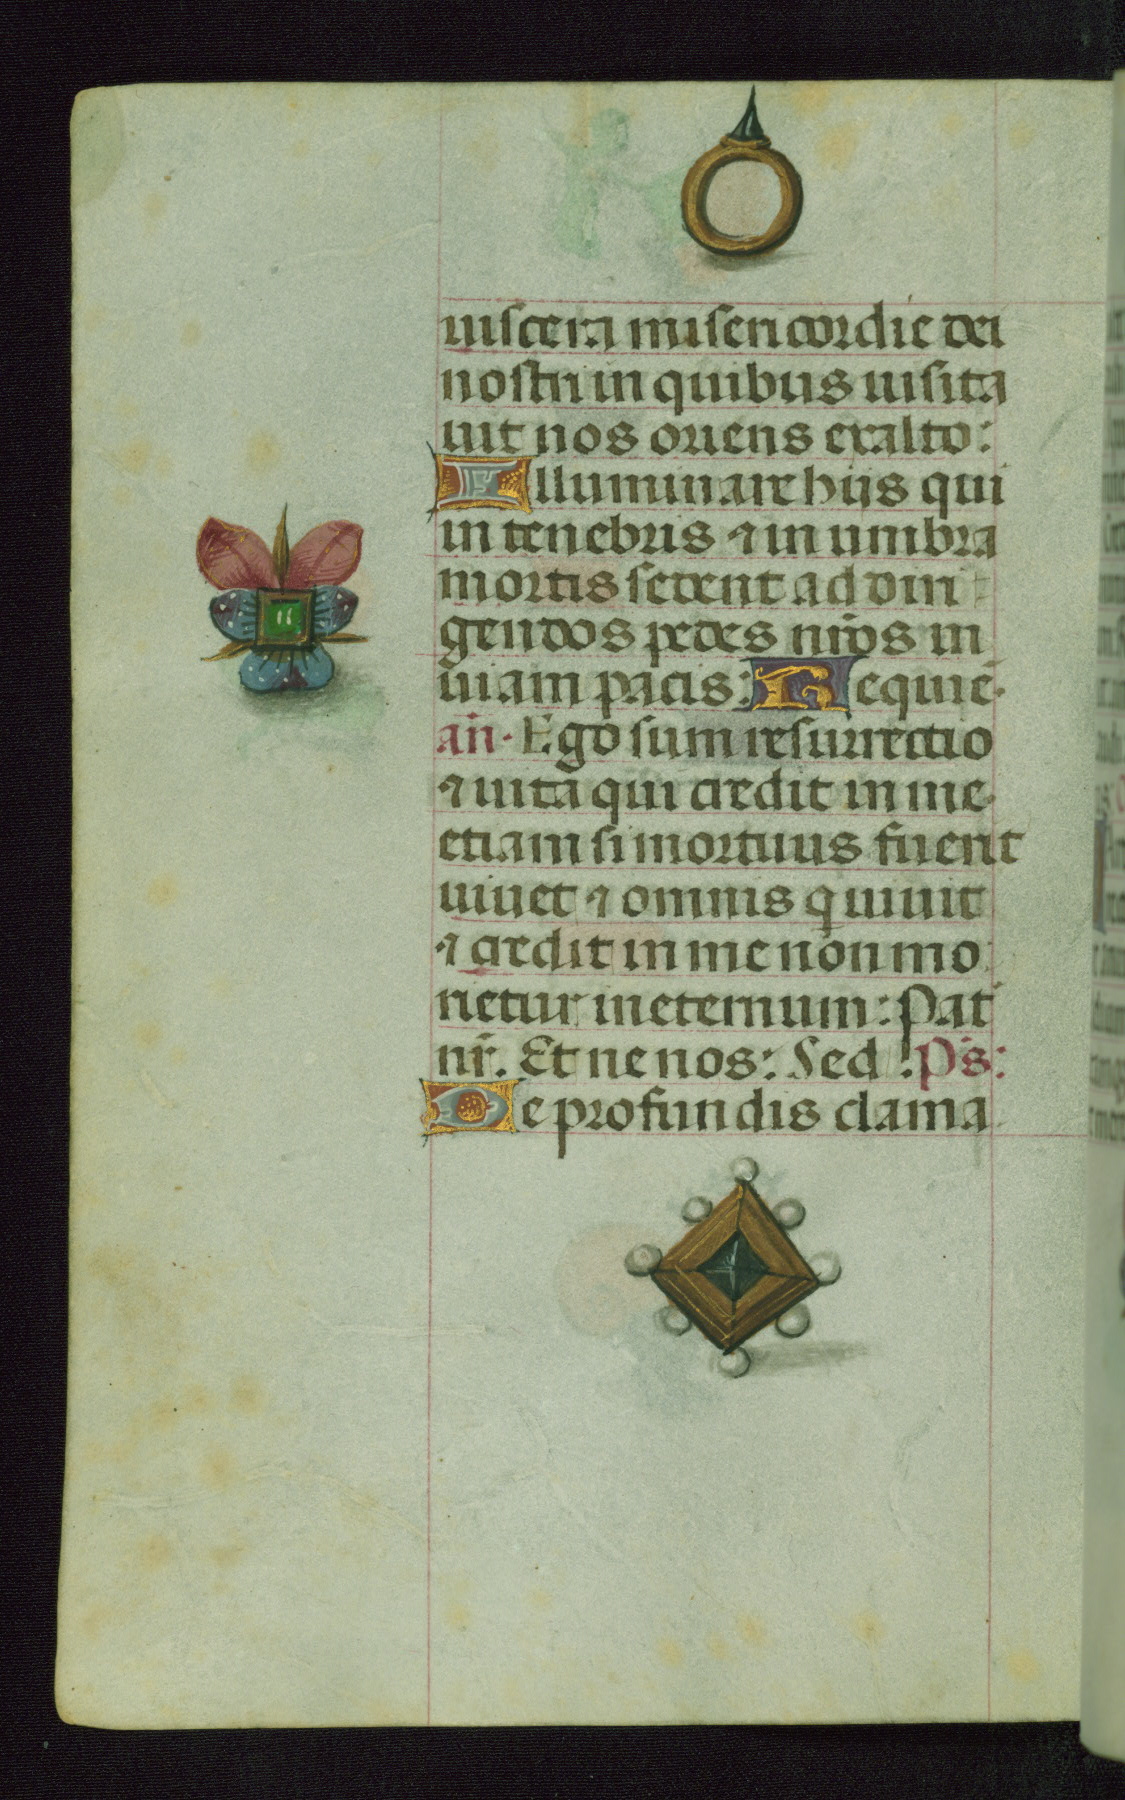 uiscera misericordie dei
nostri in quibus uisita
uit nos oriens exalto:
Illuminare hijs qui
in tenebris ⁊ in umbra
mortis sedent ad diri
gendos pedes nr̄os in
uiam pacis: Requiē.
an̄. Ego sum resurrectio
⁊ uita qui credit in me
etiam si mortuus fuerit
uiuet ⁊ omnis q uiuit
⁊ credit in me non mo
rietur in eternum: Pat̄
nr̄. Et ne nos: Sed: Ps̄:
De profundis clama